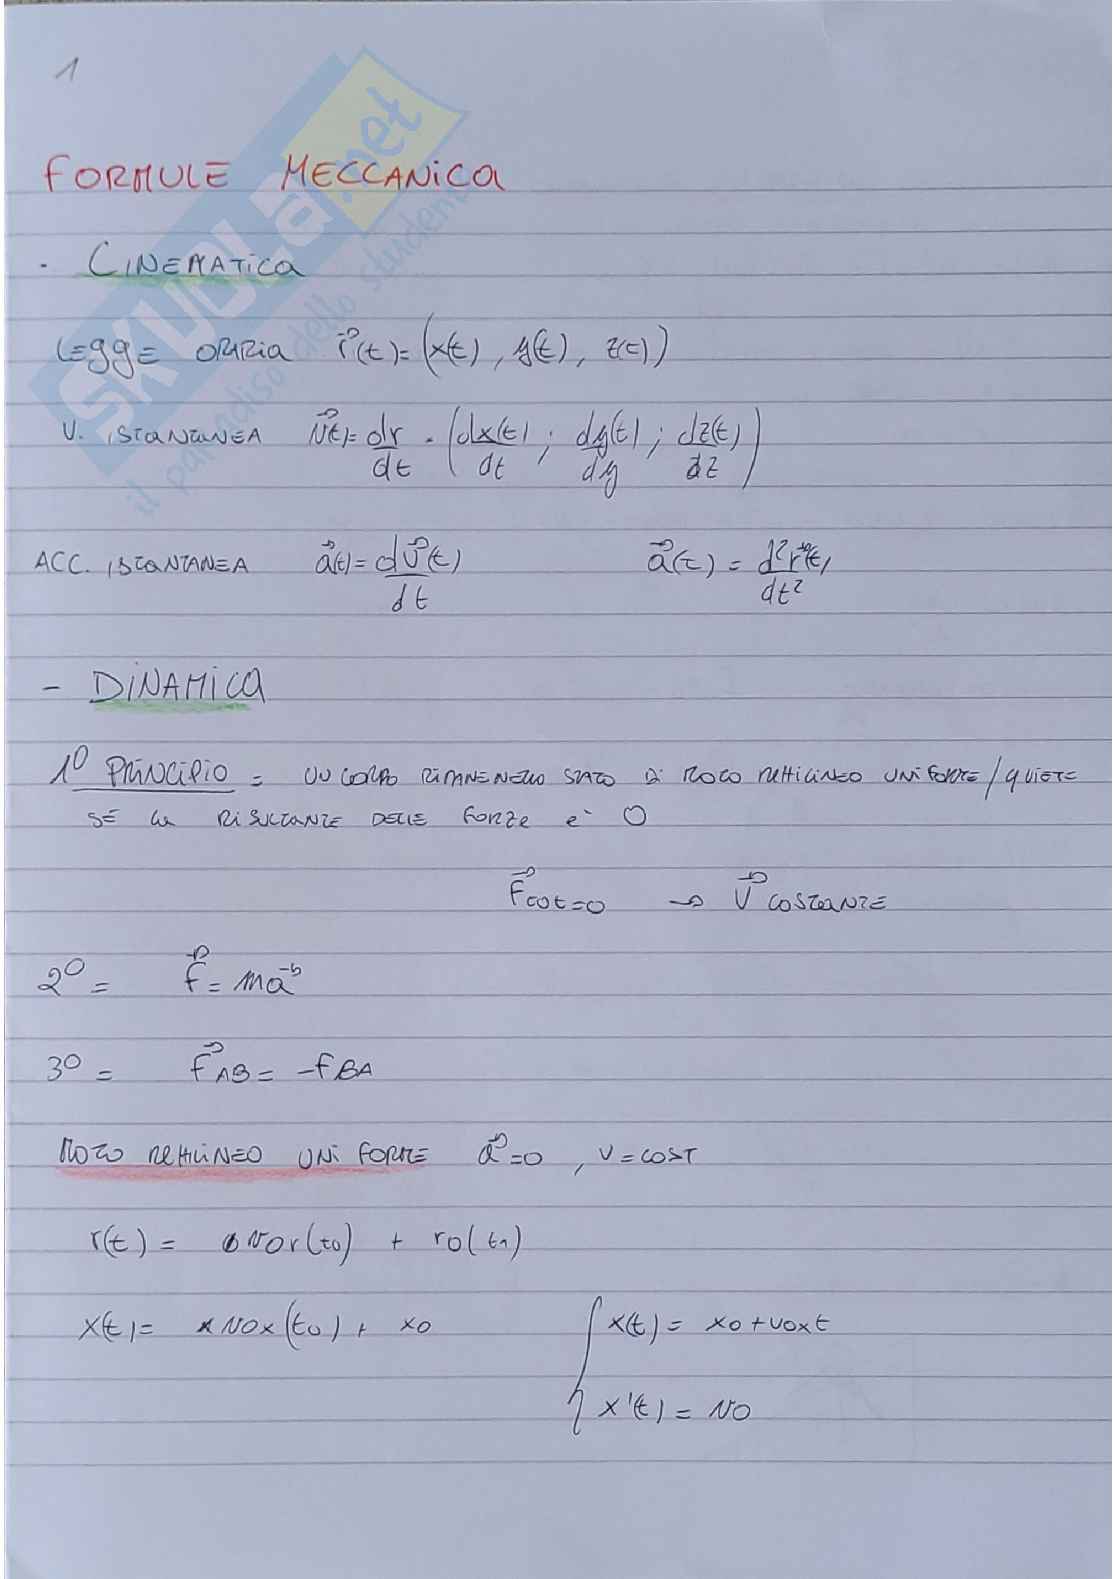 1
FORMULE MECCANICA
- CINEMATICA
LEGGE ORARIA r⃗(t) = (x(t), y(t), z(t))
V. ISTANTANEA v⃗(t) = dr/dt = (dx(t)/dt ; dy(t)/dy ; dz(t)/dz)
ACC. ISTANTANEA a⃗(t) = dv⃗(t)/dt a⃗(t) = d²r⃗(t)/dt²
- DINAMICA
1º PRINCIPIO = UN CORPO RIMANE NELLO STATO DI MOTO RETTILINEO UNIFORME / QUIETE
SE LA RISULTANTE DELLE FORZE E' 0
F⃗tot = 0 → V⃗ COSTANTE
2º = F⃗ = ma⃗
3º = F⃗AB = -FBA
MOTO RETTILINEO UNIFORME a⃗ = 0, v = COST
r(t) = v0r(t0) + r0(t1)
x(t) = v0x(t0) + x0
{ x(t) = x0 + v0xt
x'(t) = v0
SKUOLA.net
il paradiso dello studente